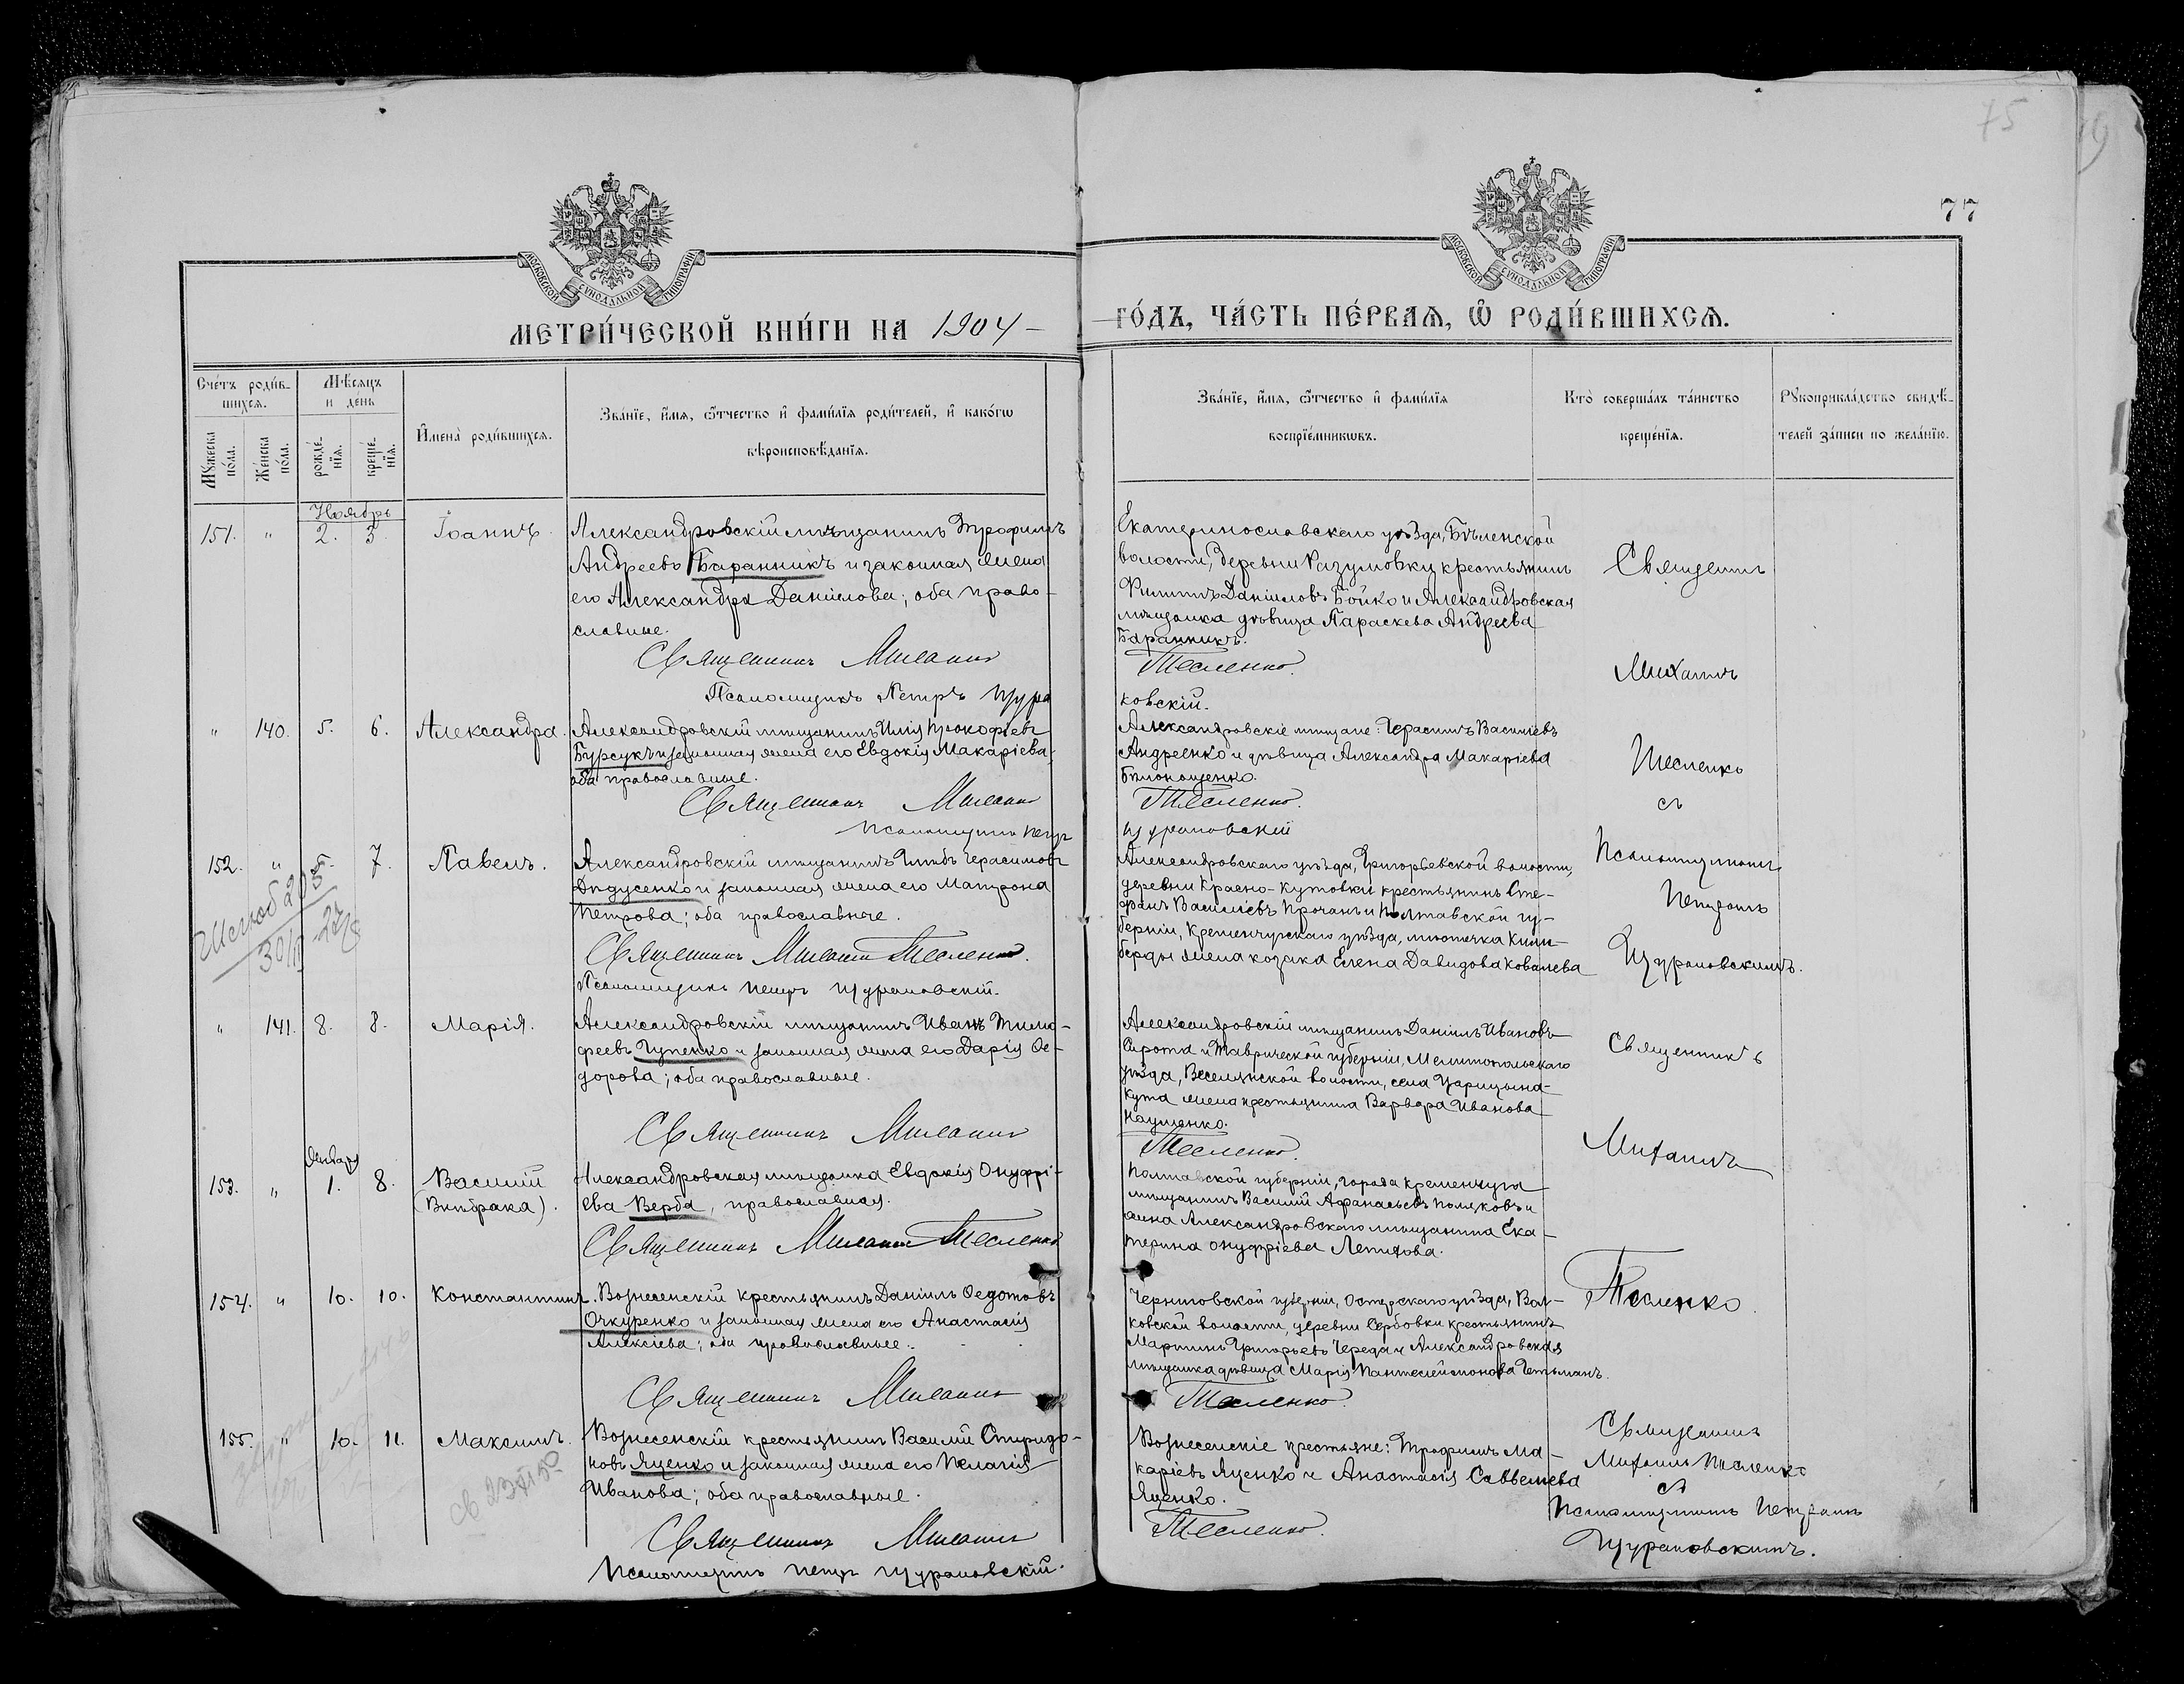 75
77
МОСКОВСКОЙ СѴНОДАЛЬНОЙ ТИПОГРАФІИ
МОСКОВСКОЙ СѴНОДАЛЬНОЙ ТИПОГРАФІИ
МЕТРИ́ЧЕСКОЙ КНИ́ГИ НА 1904 –
ГО́ДЪ, ЧА́СТЬ ПЕ́РВАѦ, Ѽ РОДИ́ВШИХСѦ.
Сче́тъ роди́в-
шихсѧ.
Мѣ́сѧцъ
и де́нь
Мꙋ́жеска по́ла.
Же́нска по́ла.
рожде́-нїѧ.
креще́-нїѧ.
И҆мена̀ роди́вшихсѧ.
Зва́нїе, и҆́мѧ, ѻ҆́тчество и҆ фами́лїѧ роди́телей, и҆ како́гѡ
вѣроисповѣ́данїѧ.
Зва́нїе, и҆́мѧ, ѻ҆́тчество и҆ фами́лїѧ
воспрїе́мникѡвъ.
Кто̀ соверша́лъ та́инство
креще́нїѧ.
Рꙋкоприкла́дство свидѣ́-
телей за́писи по жела́нїю.
Ноябрь
151. " 2. 3. Іоаннъ.
Александровскій мѣщанинъ Трофимъ
Андреевъ Баранникъ и законная жена
его Александра Даніилова; оба право-
славные.
Священникъ Михаилъ
Псаломщикъ Петръ Щура
Екатеринославскаго уѣзда, Бѣленской
волости, деревни Разумовки крестьянинъ
Филиппъ Даніиловъ Бойко и Александровская
мѣщанка дѣвица Параскева Андреева
Баранникъ.
Тесленко.
ковскій.
Священникъ
Михаилъ
Тесленко
съ
Псаломщикомъ
Петромъ
Щураповскимъ.
" 140. 5. 6. Александра.
Александровскій мѣщанинъ Илія Прокофіевъ
Бурсукъ и законная жена его Евдокія Макаріева,
оба православные.
Священникъ Михаилъ
Псаломщикъ Петръ
Александровскіе мѣщане: Герасимъ Василіевъ
Андреенко и дѣвица Александра Макаріева
Бѣлокощенко.
Тесленко.
Щураповскій
152. " 5. 7. Павелъ.
Александровскій мѣщанинъ Глѣбъ Герасимовъ
Дидусенко и законная жена его Матрона
Петрова; оба православные.
Священникъ Михаилъ Тесленко.
Псаломщикъ Петръ Щураповскій.
Александровскаго уѣзда, Григорьевской волости,
деревни Красно-Кутовки крестьянинъ Сте-
фанъ Василіевъ Прочанъ и Полтавской гу-
берніи, Кременчугскаго уѣзда, мѣстечка Кели-
берды жена козака Елена Давидова Ковалева
" 141. 8. 8. Марія.
Александровскій мѣщанинъ Иванъ Тимо-
феевъ Гупенко и законная жена его Дарія Ѳе-
дорова; оба православные.
Священникъ Михаилъ
Александровскій мѣщанинъ Даніилъ Ивановъ
Сирота и Таврической губерніи, Мелитопольскаго
уѣзда, Веселянской волости, села Царицына-
кута жена крестьянина Варвара Иванова
Науменко.
Тесленко.
Священникъ
Михаилъ
Тесленко.
Январь
153. " 1. 8. Василій
(Внѣбрака).
Александровская мѣщанка Евдокія Онуфрі-
ева Верба, православная.
Священникъ Михаилъ Тесленко
Полтавской губерніи, города Кременчуга
мѣщанинъ Василій Афанасьевъ Поляковъ и
жена Александровскаго мѣщанина Ека-
терина Онуфріева Лепихова.
154. " 10. 10. Константинъ.
Вознесенскій крестьянинъ Даніилъ Ѳедотовъ
Очкуренко и законная жена его Анастасія
Алексіева; оба православные.
Священникъ Михаилъ
Черниговской губерніи, Остерскаго уѣзда,
ковской волости, деревни Сербовки крестьянинъ
Мартинъ Григорьевъ Череда и Александровская
мѣщанка дѣвица Марія Пантелеймонова Гетьманъ.
Тесленко.
155. " 10. 11. Максимъ.
Вознесенскій крестьянинъ Василій Спиридо-
новъ Яценко и законная жена его Пелагія
Иванова; оба православные.
Священникъ Михаилъ
Псаломщикъ Петръ Щураповскій.
Вознесенскіе крестьяне: Трофимъ Ма-
каріевъ Яценко и Анастасія Савельева
Яценко.
Тесленко.
Священникъ
Михаилъ Тесленко
съ
Псаломщикомъ Петромъ
Щураповскимъ.